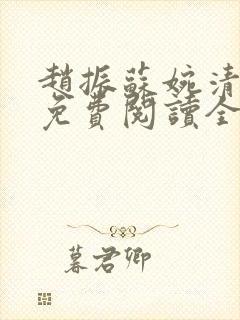 趙振蘇婉清
免費閱讀全
暮君卿